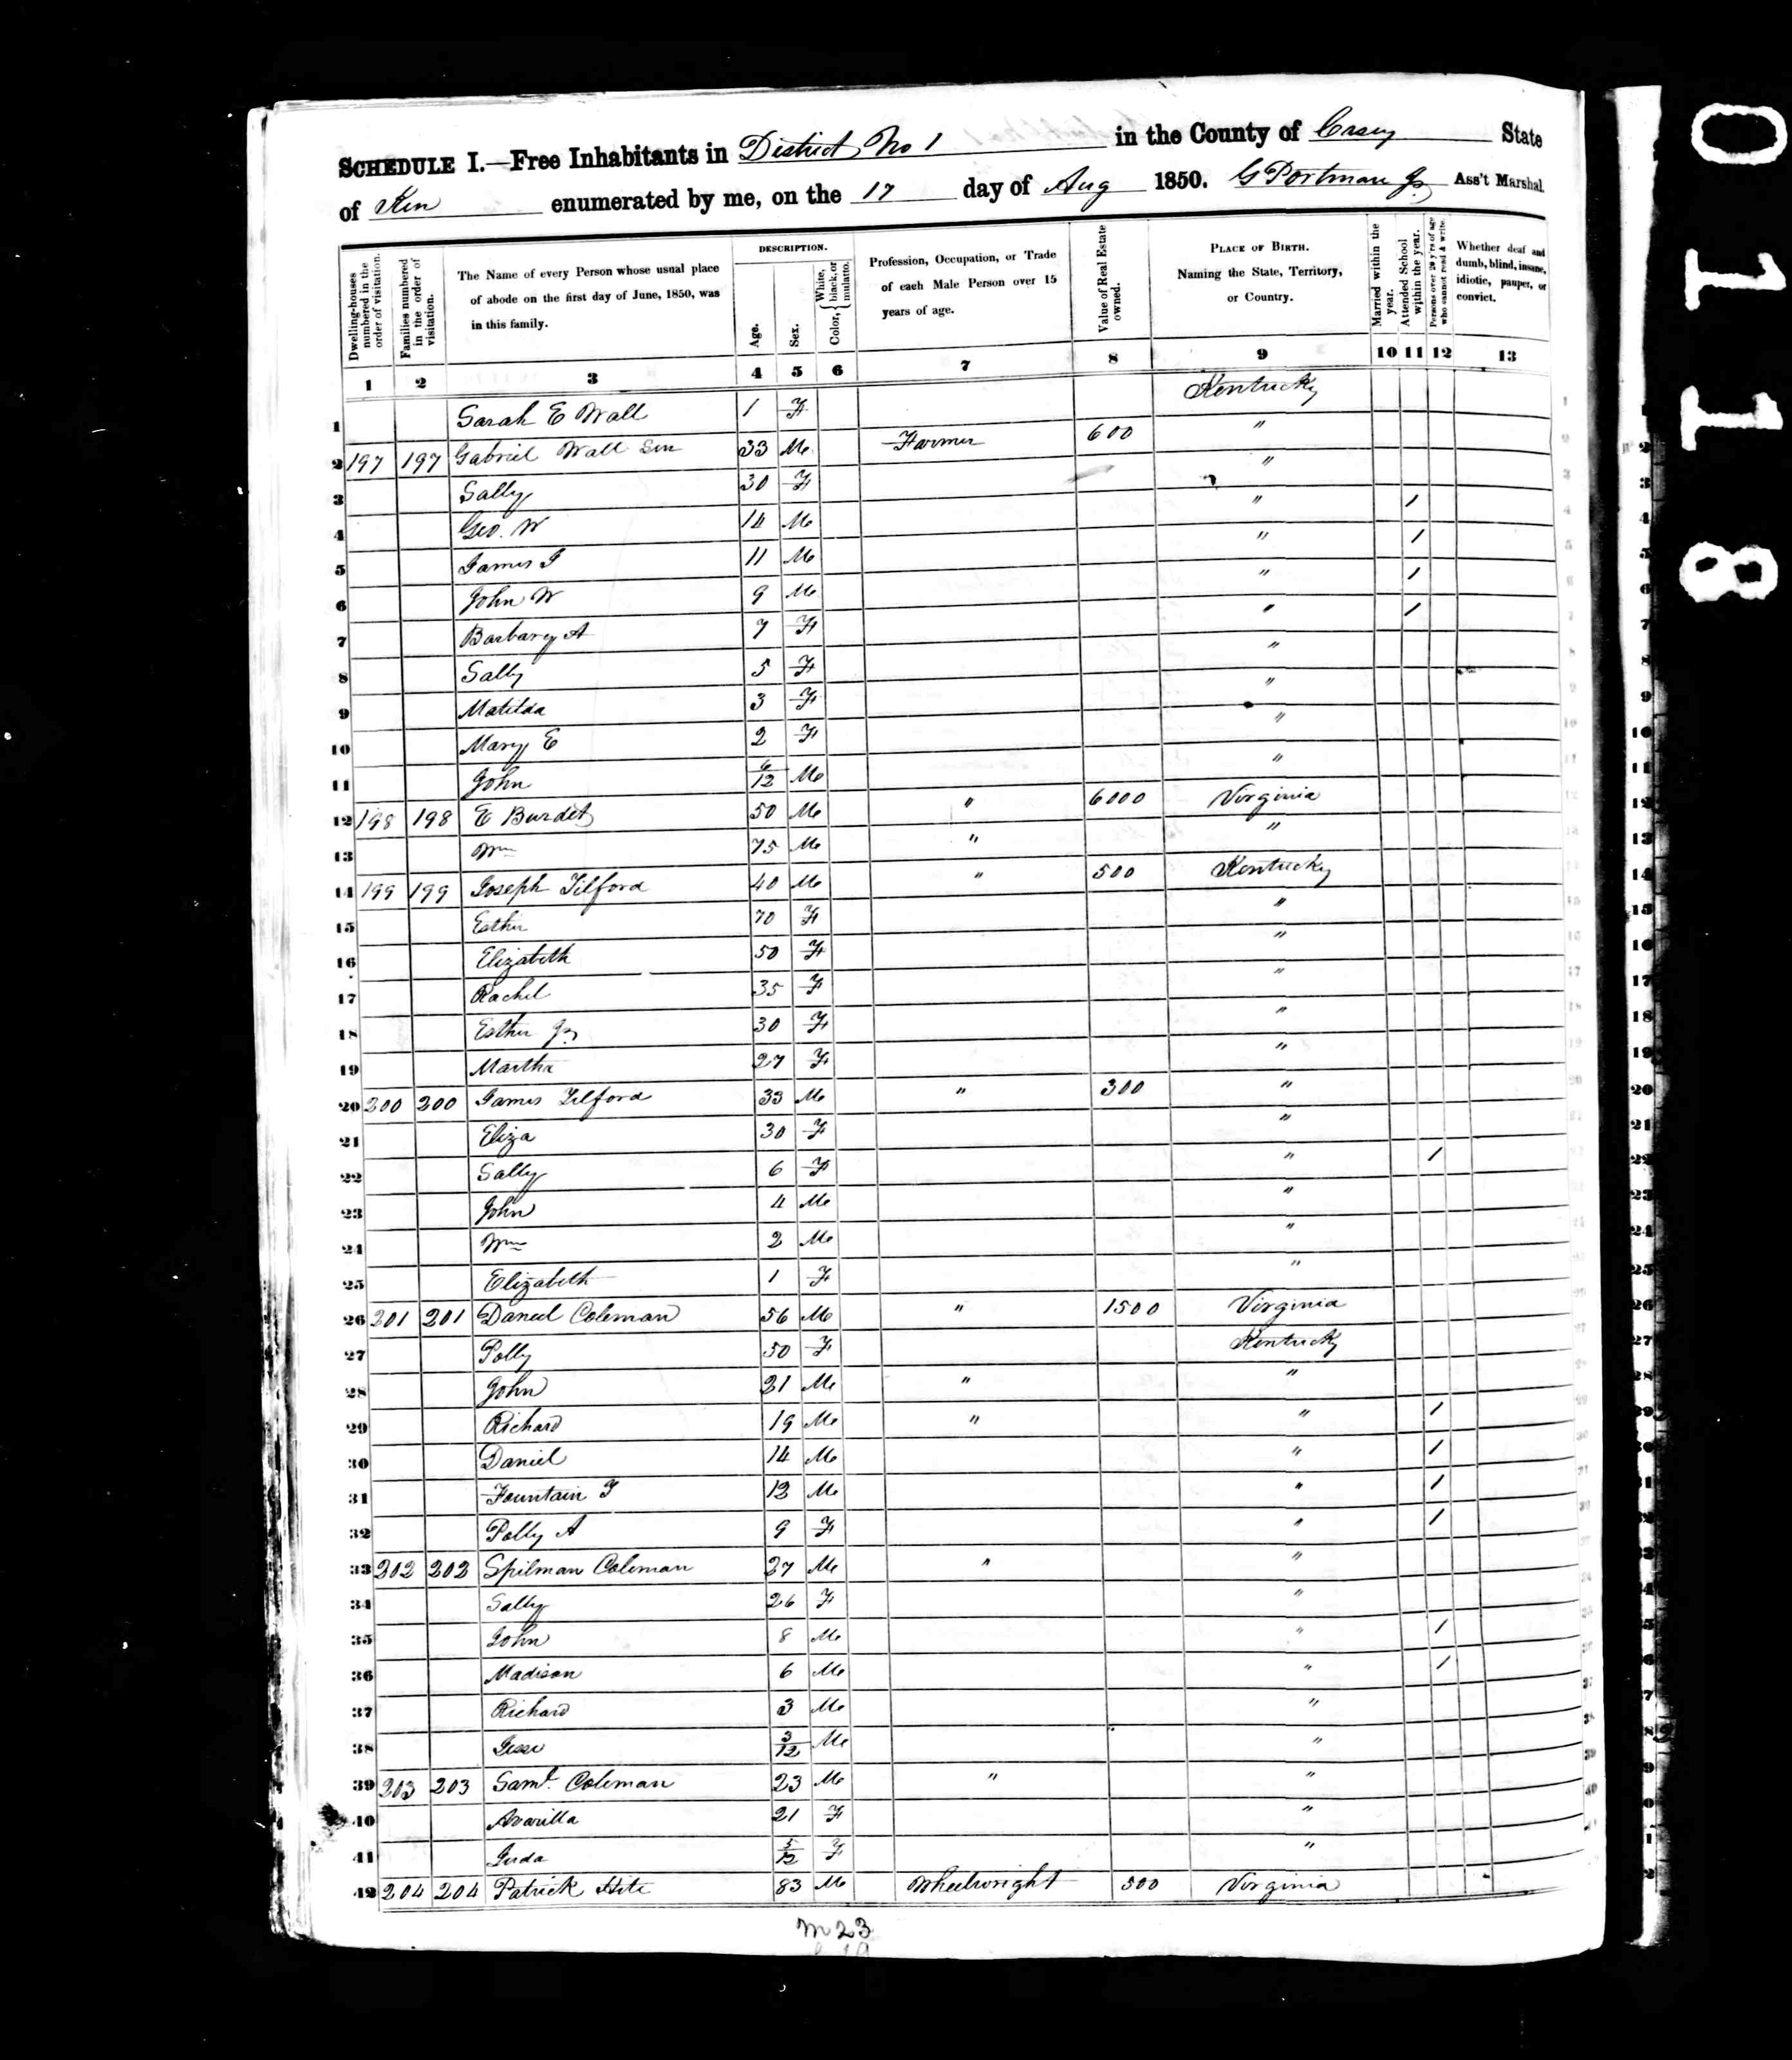 SCHEDULE I.—Free Inhabitants in District No 1 in the County of Casey State
of Ken enumerated by me, on the 17 day of Aug 1850. G Portman Jr Ass't Marshal.
Dwelling-houses numbered in the order of visitation.
Families numbered in the order of visitation.
The Name of every Person whose usual place of abode on the first day of June, 1850, was in this family.
DESCRIPTION.
Age.
Sex.
Color, { White, black, or mulatto.
Profession, Occupation, or Trade of each Male Person over 15 years of age.
Value of Real Estate owned.
PLACE OF BIRTH. Naming the State, Territory, or Country.
Married within the year.
Attended School within the year.
Persons over 20 y'rs of age who cannot read & write.
Whether deaf and dumb, blind, insane, idiotic, pauper, or convict.
1 2 3 4 5 6 7 8 9 10 11 12 13
1 Sarah E Wall 1 F Kentucky
2 197 197 Gabriel Wall Sen 33 M Farmer 600 " 2
3 Sally 30 F " 3
4 Geo. W 14 M " / 4
5 James 11 M " / 5
6 John W 9 M " / 6
7 Barbary A 7 F " / 7
8 Sally 5 F " 8
9 Matilda 3 F " 9
10 Mary E 2 F " 10
11 John 6/12 M " 11
12 198 198 E Burdet 50 M " 6000 Virginia 12
13 Wm 75 M " " 13
14 199 199 Joseph Tilford 40 M " 500 Kentucky 14
15 Esther 70 F " 15
16 Elizabeth 50 F " 16
17 Rachel 35 F " 17
18 Esther Jr 30 F " 18
19 Martha 27 F " 19
20 200 200 James Tilford 33 M " 300 " 20
21 Eliza 30 F " 21
22 Sally 6 F " / 22
23 John 4 M " 23
24 Wm 2 M " 24
25 Elizabeth 1 F " 25
26 201 201 Daniel Coleman 56 M " 1500 Virginia 26
27 Polly 50 F Kentucky 27
28 John 21 M " " 28
29 Richard 19 M " " /
30 Daniel 14 M " /
31 Fountain 12 M " /
32 Polly A 9 F " /
33 202 202 Spilman Coleman 27 M " "
34 Sally 26 F "
35 John 8 M " /
36 Madison 6 M " /
37 Richard 3 M "
38 Jesse 3/12 M "
39 203 203 Saml. Coleman 23 M " "
40 Avarilla 21 F "
41 5/12 F "
42 204 204 Patrick Hite 83 M Wheelwright 500 Virginia
m 23
0118